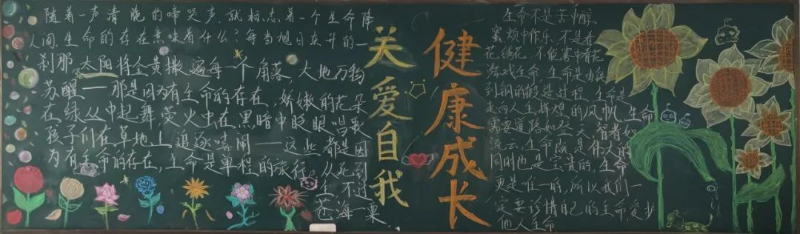 随着一声清脆的啼哭声,就标志着一个生命降
人间生命的存在意味着什么?每当旭日东升的一
刹那 太阳将金黄撒遍每一个角落 大地万物
苏醒——那是因为有生命的存在,娇嫩的花朵
在绿丛中起舞萤火虫在黑暗中眨眼唱歌
孩子们在草地上追逐嬉闹——这些都是因
为有生命的存在,生命是单程的旅行从生到
死不过
沧海一粟
关爱自我
健康成长
生命不是苦中醇
蜜 烦中作乐 不是看
花绣花 不能雾中看花
游戏生命 生命是由铁
到钢的锻造过程 生命是
走向人生辉煌的风帆 生命
需要道路如蓝天
流云 生命
同时也是宝贵的 生命
更是唯一的,所以我们一
定要珍惜自己的生命爱护
他人生命